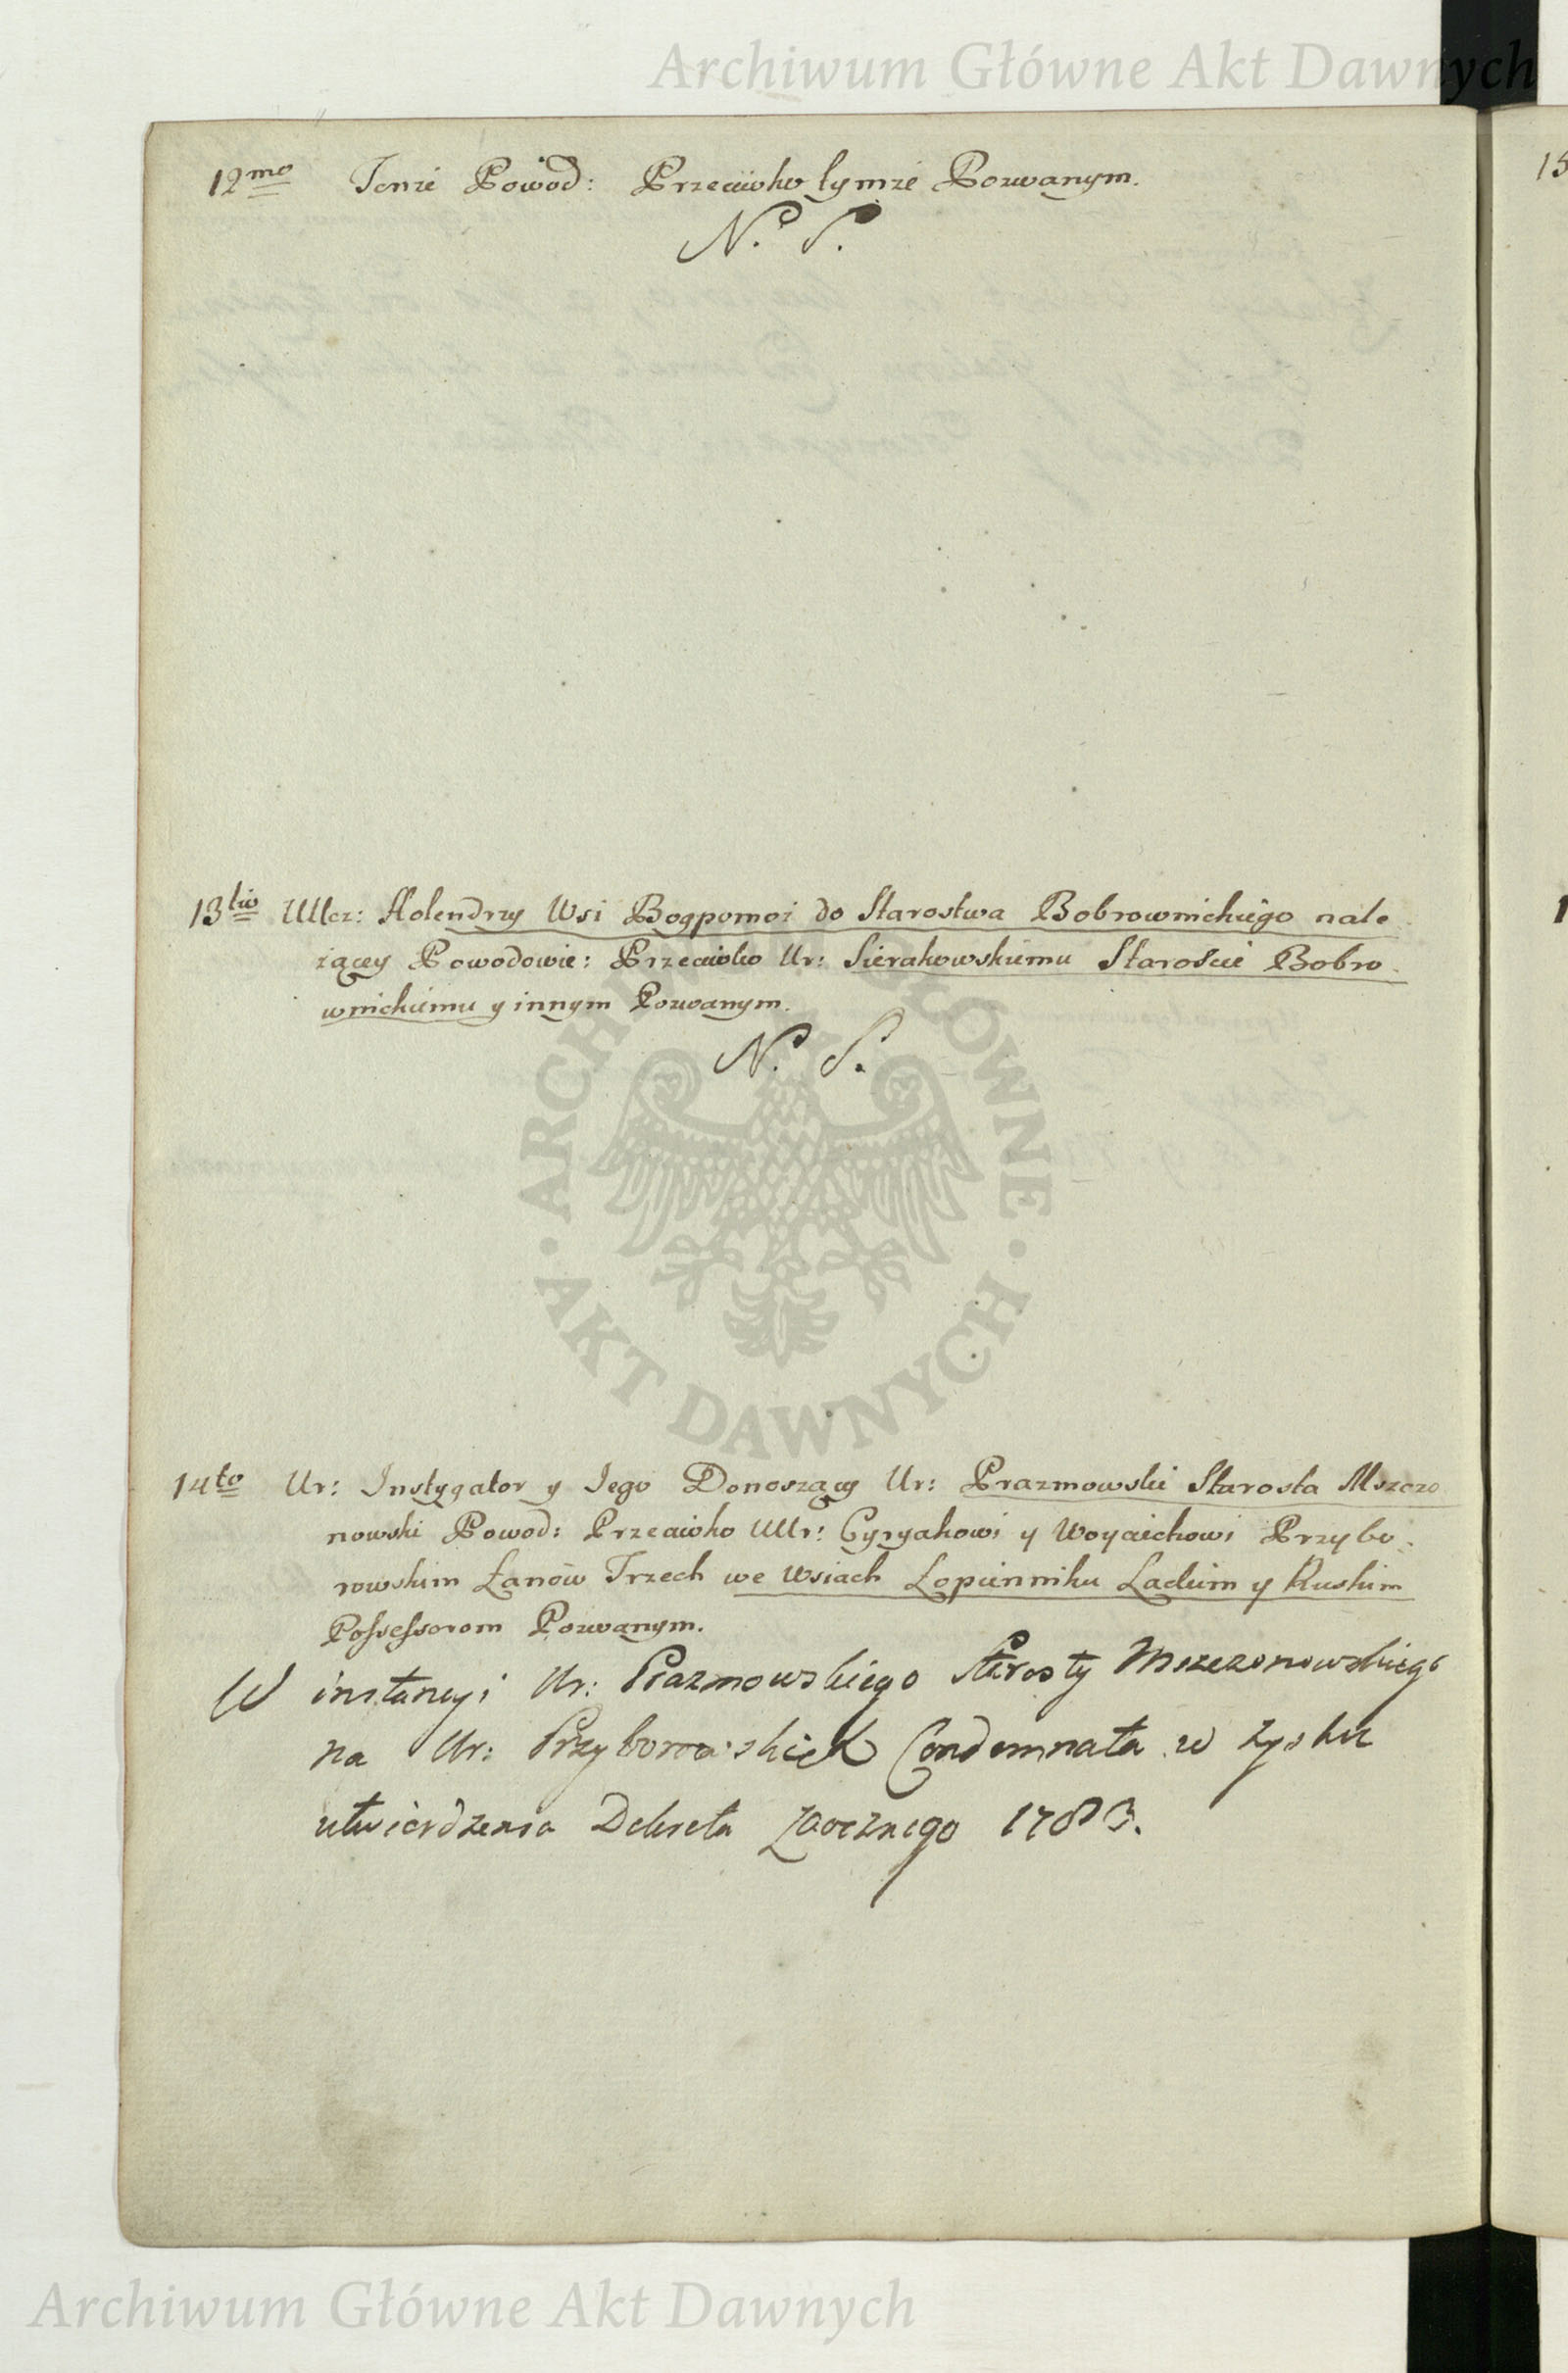 Archiwum Główne Akt Dawnych
12mo Tenże Powod: Przeciwko tymże Pozwanym.
N. S.
13tio UUcz: Holendrzy Wsi Bogpomoż do Starostwa Bobrownickiego nale
żącey Powodowie: Przeciwko Ur: Sierakowskiemu Staroście Bobro
wnickiemu y innym Pozwanym.
N. S.
14to Ur: Instygator y Jego Donoszący Ur: Prazmowski Starosta Mszczo
nowski Powod: Przeciwko UUr: Cyryakowi y Woyciechowi Przybo
rowskim Łanów Trzech we Wsiach Łopienniku Lackim y Ruskim
Possessorom Pozwanym.
W instancyi Ur: Prazmowskiego Starosty Mszczonowskiego
na Ur: Przyborowskich Condemnata w zysku
utwierdzenia Dekretu zaocznego 1783.
ARCHIWUM GŁÓWNE · AKT DAWNYCH ·
Archiwum Główne Akt Dawnych
15
1